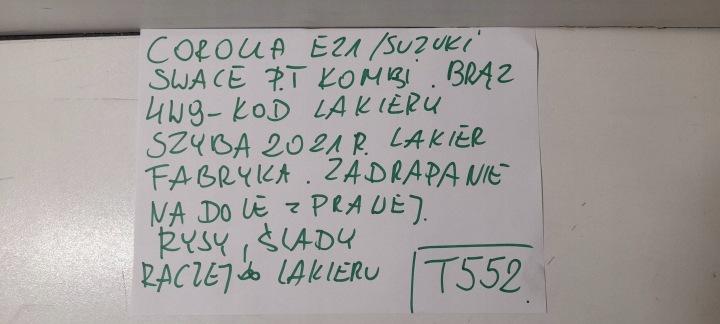 COROLLA E21/SUZUKI
SWACE P.T KOMBI. BRĄZ
4W9-KOD LAKIERU
SZYBA 2021 R. LAKIER
FABRYKA. ZADRAPANIE
NA DOLE Z PRAWEJ.
RYSY, ŚLADY
RACZEJ do LAKIERU
T552.